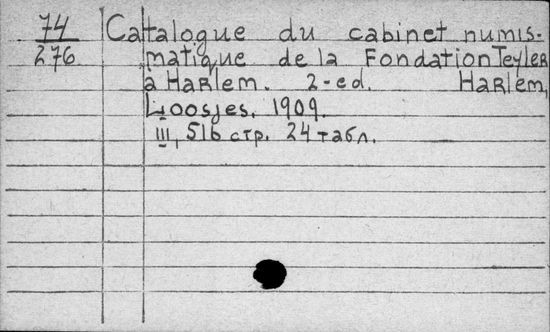 74 Catalogue du cabinet numis-
276 matique de la Fondation Teyler
à Harlem. 2-ed. Harlem,
Loosjes. 1909.
III, 516 стр. 24 табл.